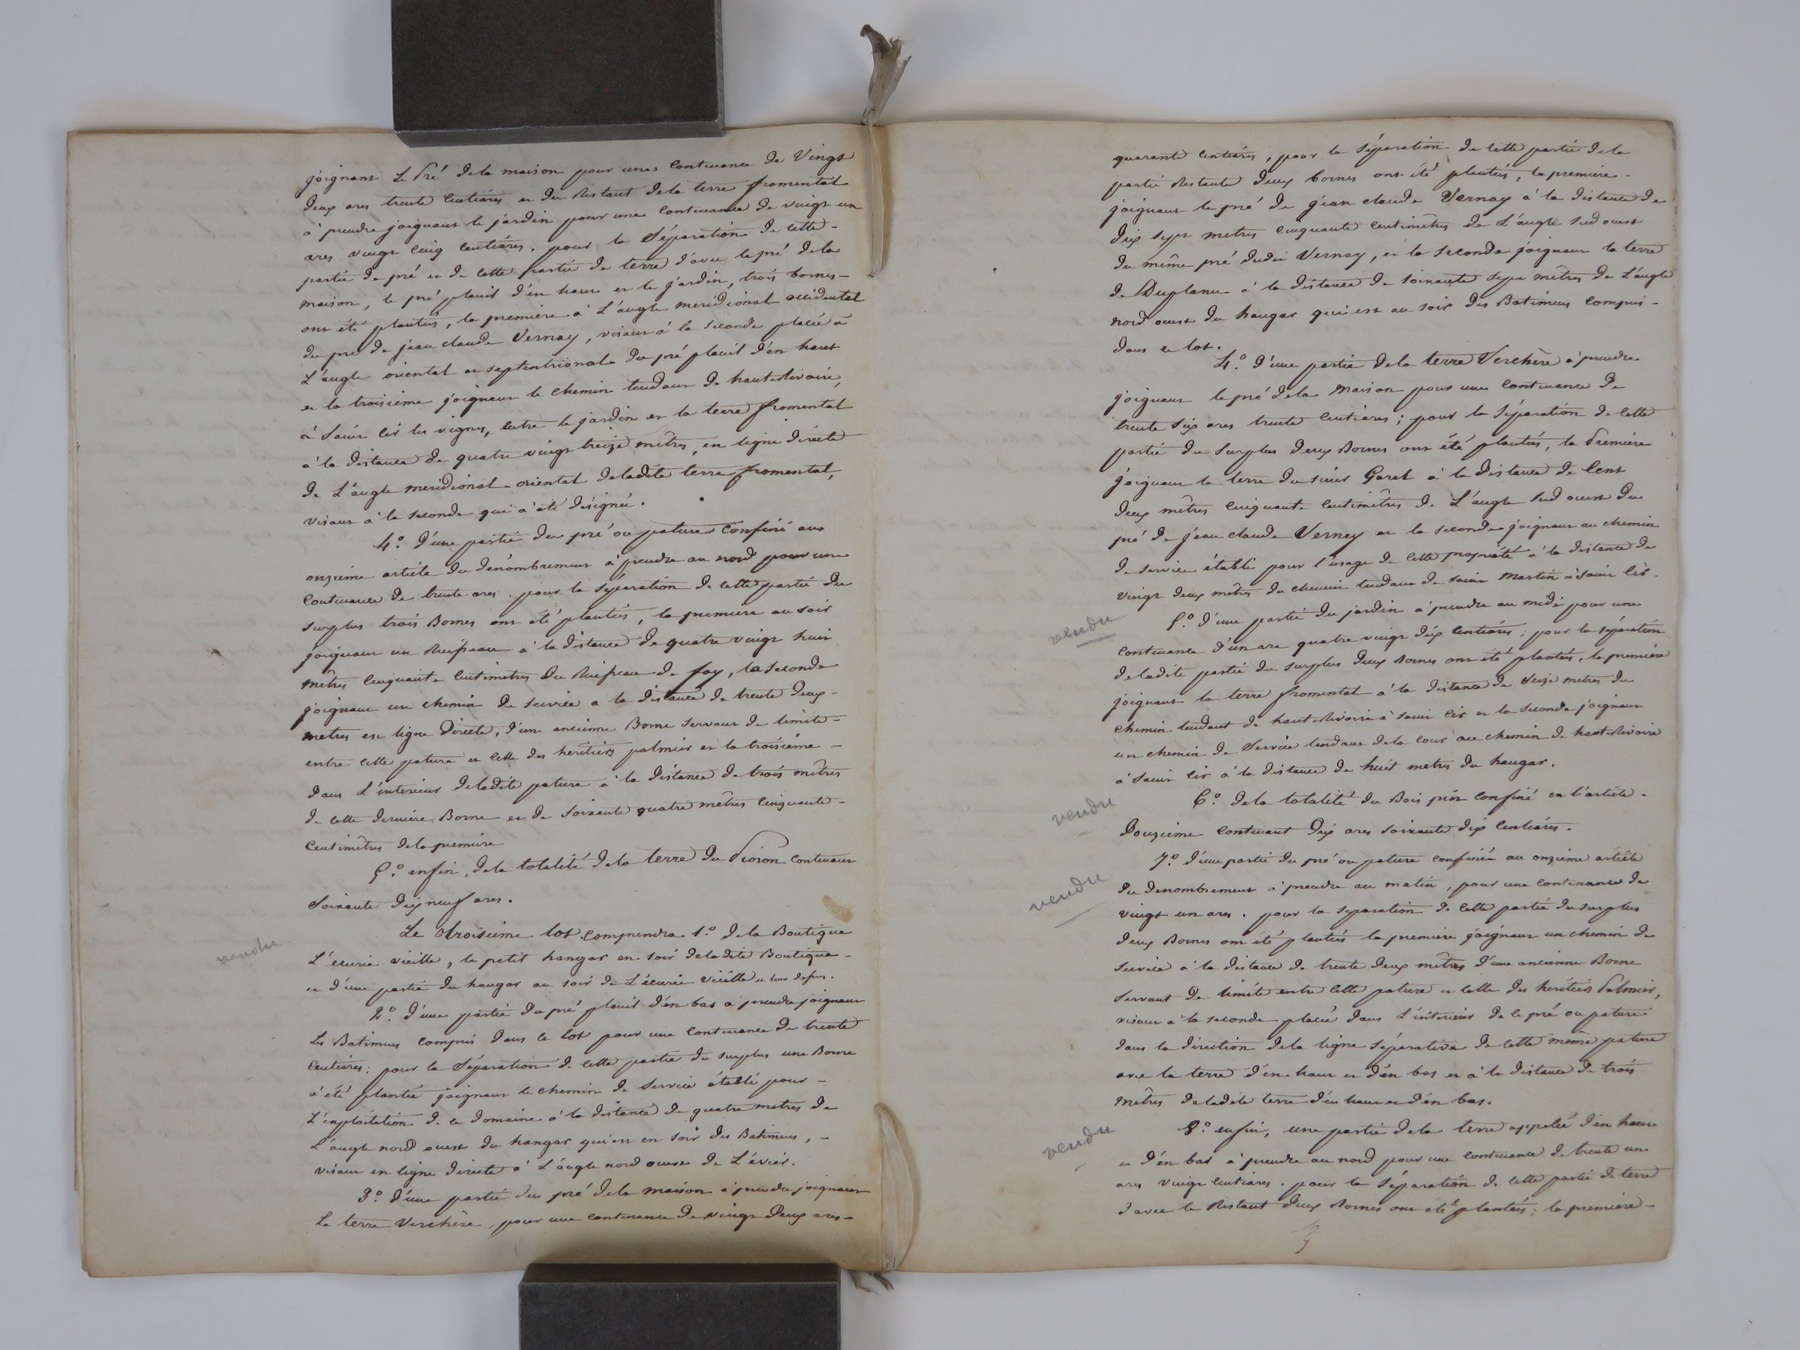 joignant le Pré dela maison pour une contenance de Vingt
deux ares trente centiares et du Restant dela terre fromental
à prendre joignant le jardin pour une contenance de vingt un
ares vingt cinq centiares, pour la séparation de cette
partie de pré et de cette partie de terre d'avec le pré dela
maison, le pré placit d'en haut et le jardin, trois bornes
ont été plantées, la première à L'angle meridional occidental
du pré de jean claude Vernay, visant à la seconde placée à
L'angle oriental et septentrional du pré placit d'en haut
et la troisième joignant le chemin tendant de hauterivoire,
à Saint cir les vignes, entre le jardin et la terre fromental
à la distance de quatre vingt treize mètres, en ligne directe
de L'angle meridional oriental deladite terre fromental,
visant à la seconde qui a été désignée.
4.° d'une partie du pré ou pature confiné aux
onzième article du dénombrement à prendre au nord pour une
contenance de trente ares. pour la séparation de cette partie du
surplus trois Bornes ont été plantées, la première au soir
joignant un Ruisseau à la distance de quatre vingt huit
mètres cinquante centimètres du Ruisseau de fay, la seconde
joignant un chemin de service a la distance de trente deux
metres en ligne directe, d'une ancienne Borne servant de limite
entre cette pature et celle des heritiers palmier et la troisième
dans L'interieur deladite pature à la distance de trois mètres
de cette dernière Borne et de soixante quatre mètres cinquante
centimètres dela premiere
5.° enfin, dela totalité dela terre du Pioron contenant
soixante dix neuf ares.
Le troisième lot comprendra 1.° dela Boutique
L'écurie vieille, le petit hangar en soir deladite Boutique
et d'une partie du hangar au soir de L'écurie vieille
vendu
2.° d'une partie du pré placit d'en bas a prendre joignant
les Batimens compris dans ce lot pour une contenance de trente
centiares; pour la séparation de cette partie du surplus une Borne
à été plantée joignant le chemin de service établi pour
L'exploitation de ce domaine à la distance de quatre metres de
L'angle nord ouest du hangar qui est en soir des Batimens,
visant en ligne directe à L'angle nord ouest de L'évier.
3.° d'une partie du pré dela maison à prendre joignant
la terre Verchère, pour une contenance de vingt deux ares
quarante centiares, pour la séparation de cette partie dela
partie Restante deux bornes ont été plantées, la premiere
joignant le pré de jean claude Vernay à la distance de
dix sept metres cinquante centimètres de L'angle sud ouest
du même pré dudit Vernay, et la seconde joignant la terre
de Duplane à la distance de soixante sept mètres de L'angle
nord ouest du hangar qui est au soir des Batimens compris
dans ce lot.
4.° d'une partie dela terre Verchère à prendre
joignant le pré dela maison pour une contenance de
trente six ares trente centiares; pour la séparation de cette
partie du surplus deux Bornes ont été plantées, la Premiere
joignant la terre du sieur Garel à la distance de Cent
deux mètres cinquante centimètres de L'angle sud ouest du
pré de jean claude Vernay et la seconde joignant au chemin
de service établi pour l'usage de cette propriété à la distance de
vingt deux mètres du chemin tendant de saint martin à saint cir.
vendu
5.° d'une partie du jardin à prendre au midi pour une
contenance d'un are quatre vingt dix centiares; pour la séparation
deladite partie du surplus deux Bornes ont été plantées, la première
joignant la terre fromental à la distance de seize metres du
chemin tendant de hauterivoire à saint cir et la seconde joignant
un chemin de service tendant dela cour au chemin de hauterivoire
à saint cir à la distance de huit metres du hangar.
vendu
6.° dela totalité du Bois pin confiné en l'article
Douzieme contenant dix ares soixante dix centiares.
vendu
7.° d'une partie du pré ou pature confinée au onzième article
du dénombrement à prendre au matin, pour une contenance de
vingt un ares. pour la séparation de cette partie du surplus
deux Bornes ont été plantées la premiere joignant un chemin de
service à la distance de trente deux mètres d'une ancienne Borne
servant de limite entre cette pature et celle des heritiers Palmier,
visant à la seconde placée dans L'interieur de ce pré ou pature
dans la direction dela ligne séparative de cette même pature
avec la terre d'en haut et d'en bas et à la distance de trois
mètres deladite terre d'en haut et d'en bas.
vendu
8.° enfin, une partie dela terre appelée d'en haut
et d'en bas à prendre au nord pour une contenance de trente un
ares vingt centiares. pour la séparation de cette partie de terre
d'avec le Restant deux Bornes ont été plantées; la premiere